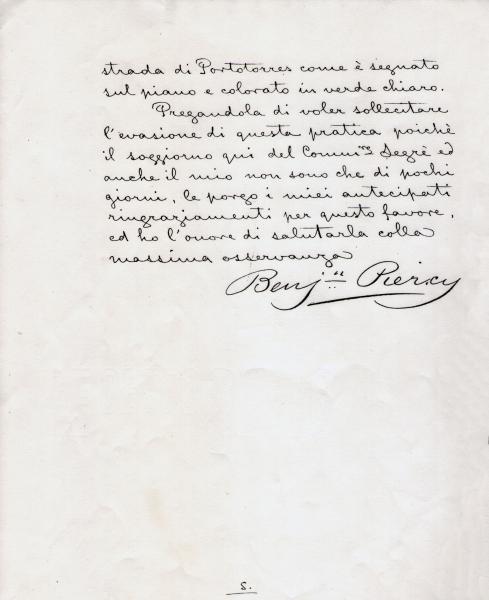 strada di Portotorres come è segnato
sul piano e colorato in verde chiaro.
Pregandola di voler sollecitare
l'evasione di questa pratica poichè
il soggiorno qui del Comm.re Segrè ed
anche il mio non sono che di pochi
giorni, le porgo i miei antecipati
ringraziamenti per questo favore,
ed ho l'onore di salutarla colla
massima osservanza
Benj.n Piercy
S.